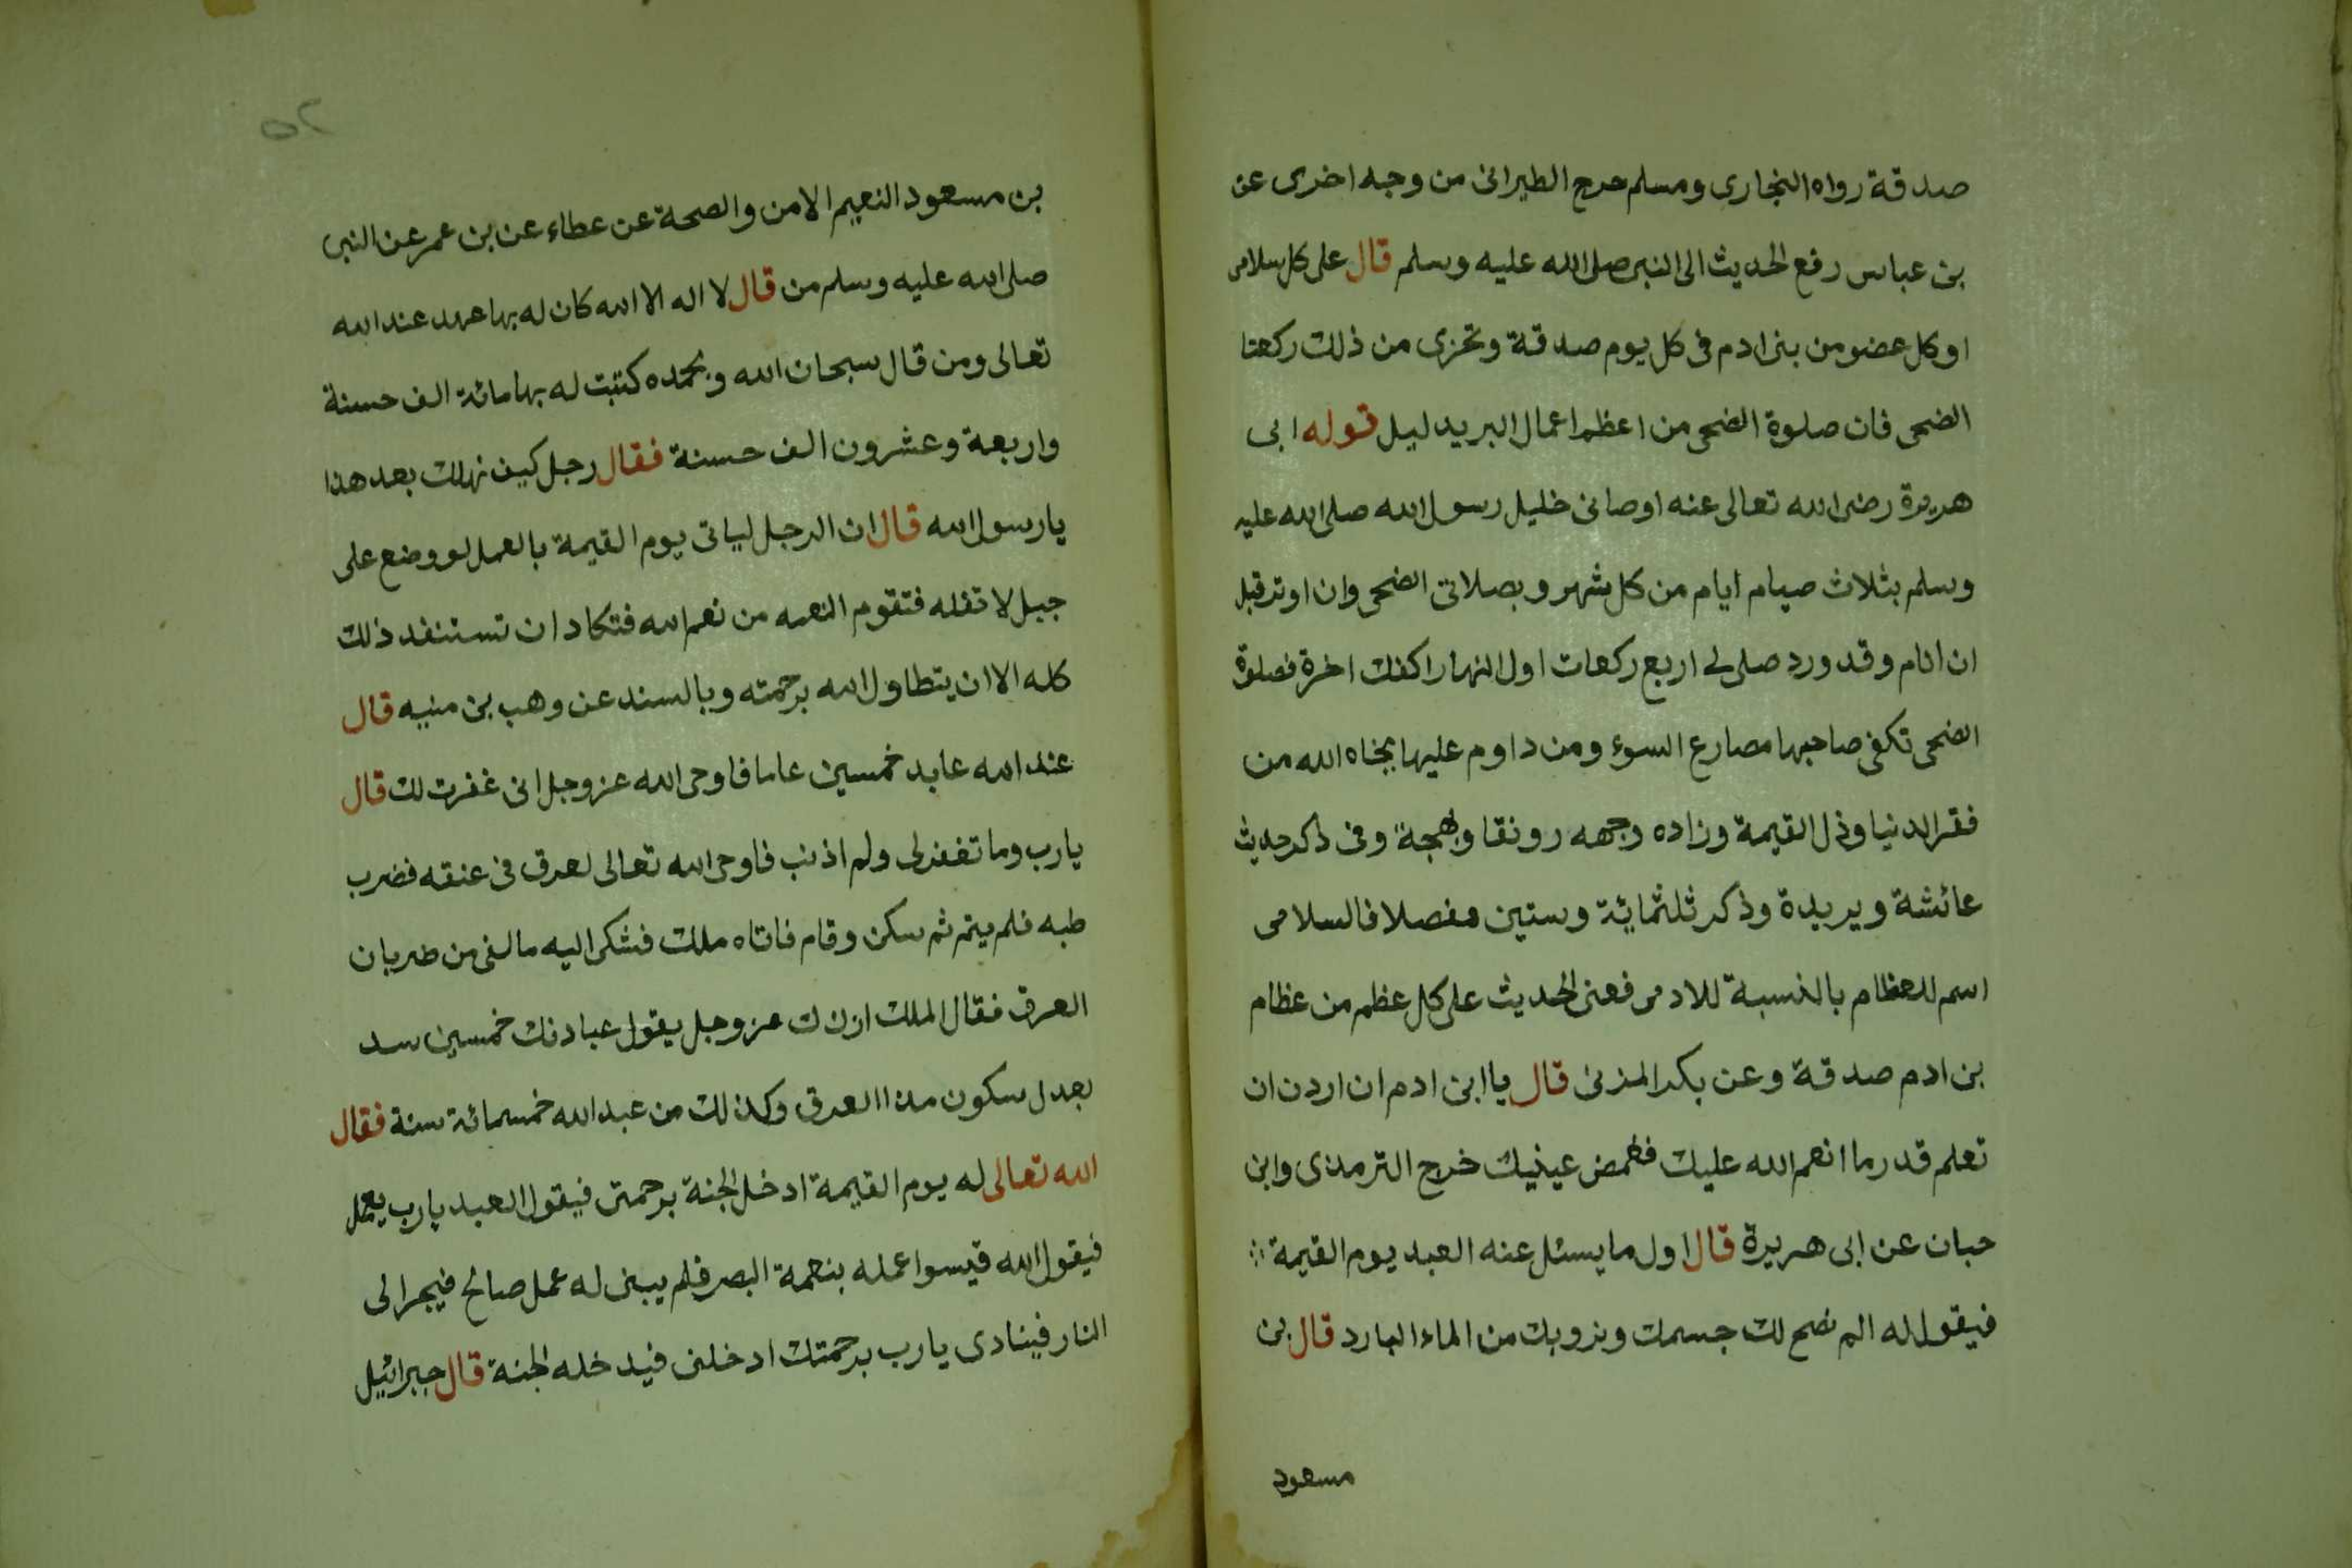 صدقة رواه البخارى ومسلم خرج الطبرانى من وجه اخرى عن
بن عباس رفع الحديث الى النبى صلى الله عليه وسلم قال على كل سلامى
او كل عضو من بنى ادم فى كل يوم صدقة وتجزى من ذلك ركعتا
الضحى فان صلوة الضحى من اعظم اعمال البر بدليل قوله ابى
هريرة رضى الله تعالى عنه اوصانى خليل رسول الله صلى الله عليه
وسلم بثلاث صيام ايام من كل شهر وبصلاتى الضحى وان اوتر قبل
ان انام وقد ورد صلى لى اربع ركعات اول النهار اكفك اخرة فصلوة
الضحى تكفى صاحبها مصارع السوء ومن داوم عليها نجاه الله من
فقر الدنيا وذل القيمة وزاده وجهه رونقا وبهجة وفى ذكر حديث
عائشة وبريدة وذكر ثلثمائة وستين مفصلا فالسلامى
اسم للعظام بالنسبة للادمى فعنى الحديث على كل عظم من عظام
بن ادم صدقة وعن بكر المزنى قال يا ابن ادم ان اردن ان
تعلم قدر ما انعم الله عليك فغمض عينيك خرج الترمذى وابن
حبان عن ابى هريرة قال اول ما يسئل عنه العبد يوم القيمة
فيقول له الم نصح لك جسمك ونرويك من الماء البارد قال بن
مسعود
٥٢
بن مسعود النعيم الامن والصحة عن عطاء عن بن عمر عن النبى
صلى الله عليه وسلم من قال لا اله الا الله كان له بها عهد عند الله
تعالى ومن قال سبحان الله وبحمده كتبت له بها مائة الف حسنة
واربعة وعشرون الف حسنة فقال رجل كيف نهلك بعد هذا
يا رسول الله قال ان الرجل لياتى يوم القيمة بالعمل لو وضع على
جبل لا ثقله فتقوم النعمه من نعم الله فتكاد ان تستنفد ذلك
كله الا ان يتطاول الله برحمته وبالسند عن وهب بن منبه قال
عند الله عابد خمسين عاما فاوحى الله عز وجل انى غفرت لك قال
يا رب وما تغفر لى ولم اذنب فاوحى الله تعالى لعرق فى عنقه فضرب
طبه فلم يتم ثم سكن وقام فاتاه ملك فشكى اليه ما لقى من ضربان
العرق فقال الملك ان عز وجل يقول عبادتك خمسين سنة
بعدل سكون هذا العرق وكذلك من عبد الله خمسمائة سنة فقال
الله تعالى له يوم القيمة ادخل الجنة برحمتى فيقول العبد يا رب بعمل
فيقول الله قيسوا عمله بنعمة البصر فلم يبنى له عمل صالح فيجر الى
النار فينادى يا رب برحمتك ادخلنى فيدخله الجنة قال جبرائيل